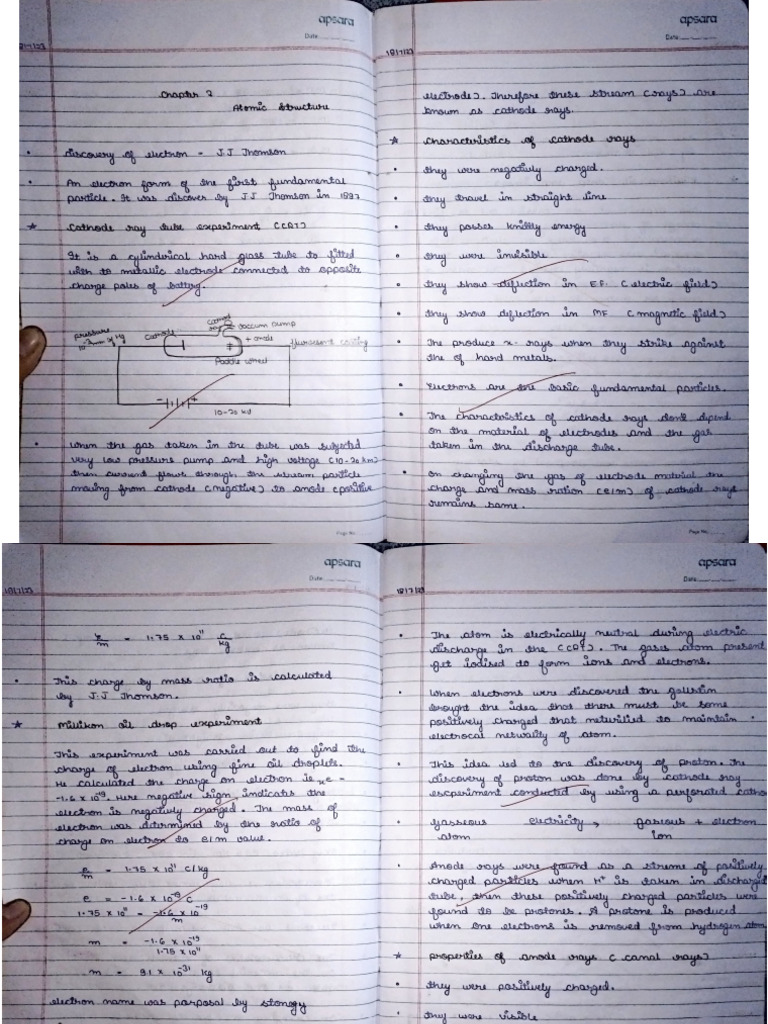 apsara
Date:
21/7/23
Chapter 2
Atomic Structure
• Discovery of electron - J.J Jhomson
• An electron form of the first fundamental
particle. It was discover by J.J Jhomson in 1897
★ Cathode ray tube experiment (CRT)
It is a cylinderical hard glass tube to fitted
with to metallic electrode connected to opposite
charge poles of battery.
pressure
Cathode
vaccum pump
+ anode
flurosent coating
Paddle wheel
- +
10-20 kv
• When the gas taken in the tube was subjected
very low pressure pump and high voltage (10-20 km)
then current flows through the stream particle
moving from cathode (negative) to anode (positive
Page No:
apsara
Date:
18/7/23
electrode). Therefore these stream (rays) are
known as cathode rays.
★ Characteristics of cathode rays
• they were negatively charged.
• they travel in straight line
• they posses energy
• they were invisible
• they show deflection in E.F. (electric field)
• they show deflection in MF (magnetic field)
• The produce x-rays when they strike against
the of hard metals.
• Electrons are the basic fundamental particles.
• The characteristics of cathode rays dond depend
on the material of electrodes and the gas
taken in the discharge tube.
• On changing the gas of electrode material the
charge and mass ration (e/m) of cathode rays
remains same.
Page No:
apsara
Date:
18/7/23
e/m = 1.75 x 10¹¹ c/kg
• This charge by mass ratio is calculated
by J.J Jhomson.
★ Millikon oil drop experiment
This experiment was carried out to find the
charge of electron using fine oil droplets.
He calculated the charge on electron is e-
-1.6 x 10⁻¹⁹. Here negative sign indicates the
electron is negatively charged. The mass of
electron was determined by the ratio of
charge on electron to e/m value.
e/m = 1.75 x 10¹¹ C/kg
e = -1.6 x 10⁻¹⁹ C
1.75 x 10¹¹ = -1.6 x 10⁻¹⁹ / m
m = -1.6 x 10⁻¹⁹ / 1.75 x 10¹¹
m = 9.1 x 10⁻³¹ kg
electron name was parposal by stonogy
apsara
Date:
18/7/23
• The atom is electrically neutral during electric
discharge in the (CRT). The gases atom present
get iodised to form ions and electrons.
• When electrons were discovered the
brought the idea that there must be some
positively charged that to maintain
electrocal of atom.
• This idea led to the discovery of proton. The
discovery of proton was done by cathode ray
escperiment conducted by using a perforated catho
• Gasseous electricity → gaseous + electron
atom ion
• Anode rays were found as a streme of positively
charged particles when H⁺ is taken in discharge
tube, then these positively charged particles were
found to be protones. A protone is produced
when one electrons is removed from hydrogen atom
★ properties of anode rays (canal rays)
• they were positively charged.
• they were visible